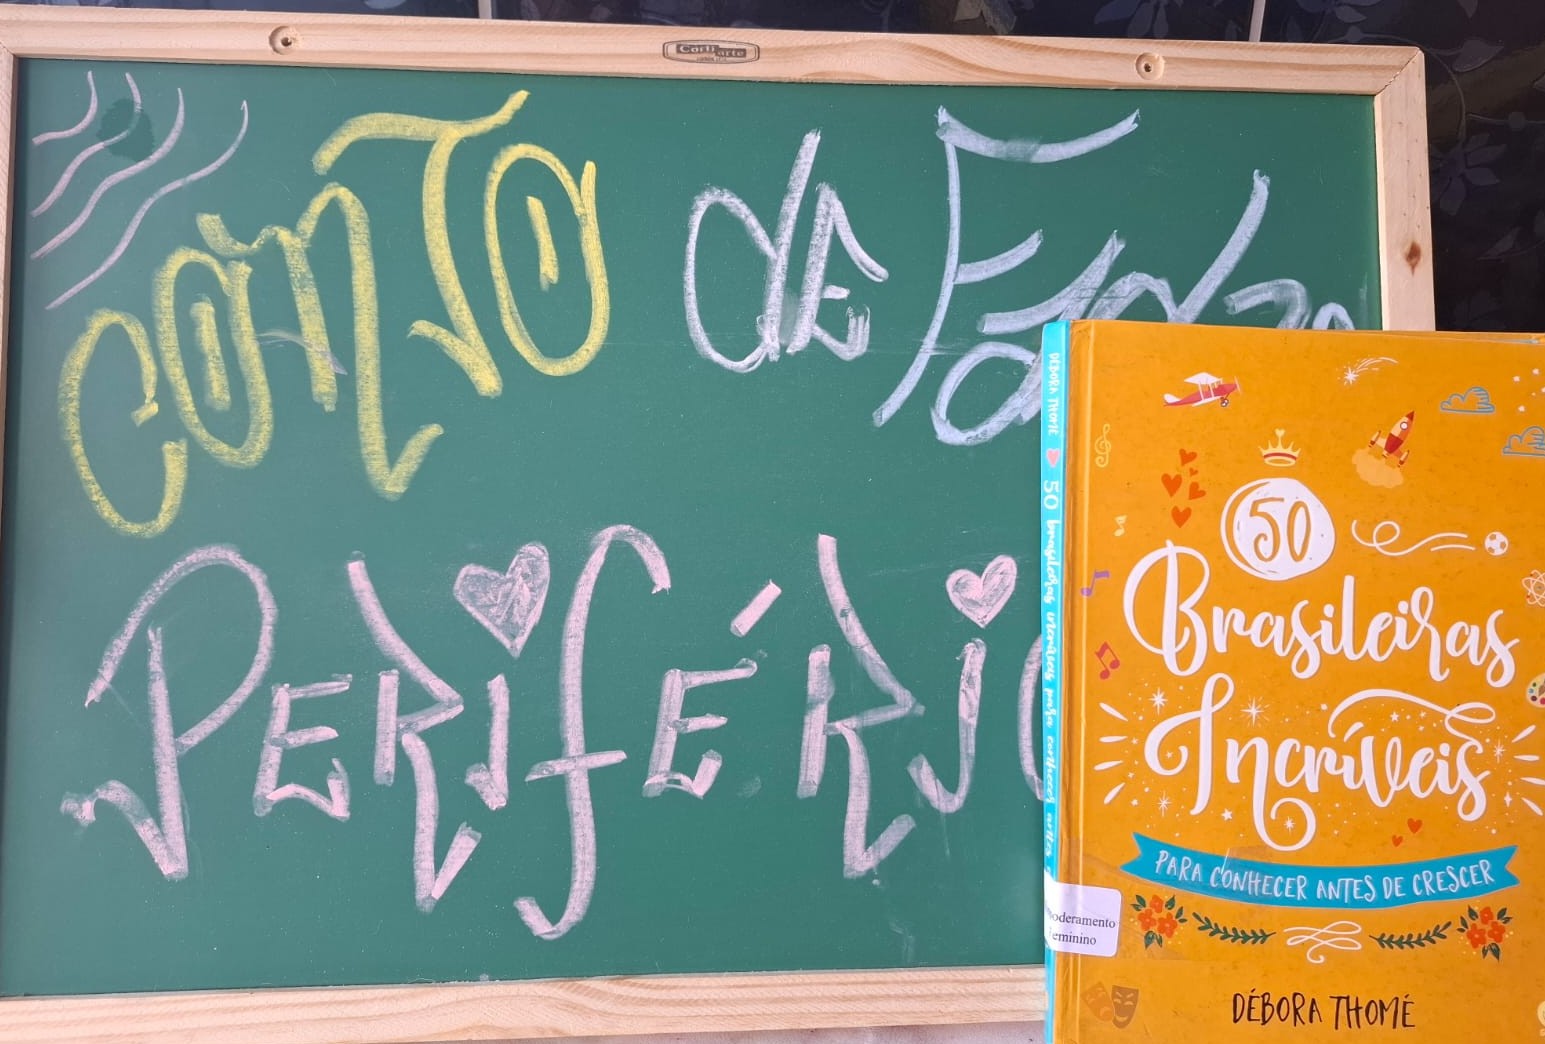 Corti arte
CONTO de Fadas
PERIFÉRIC
DÉBORA THOMÉ 50 brasileiras incríveis para conhecer antes
50
Brasileiras
Incríveis
PARA CONHECER ANTES DE CRESCER
oderamento
eminino
DÉBORA THOMÉ